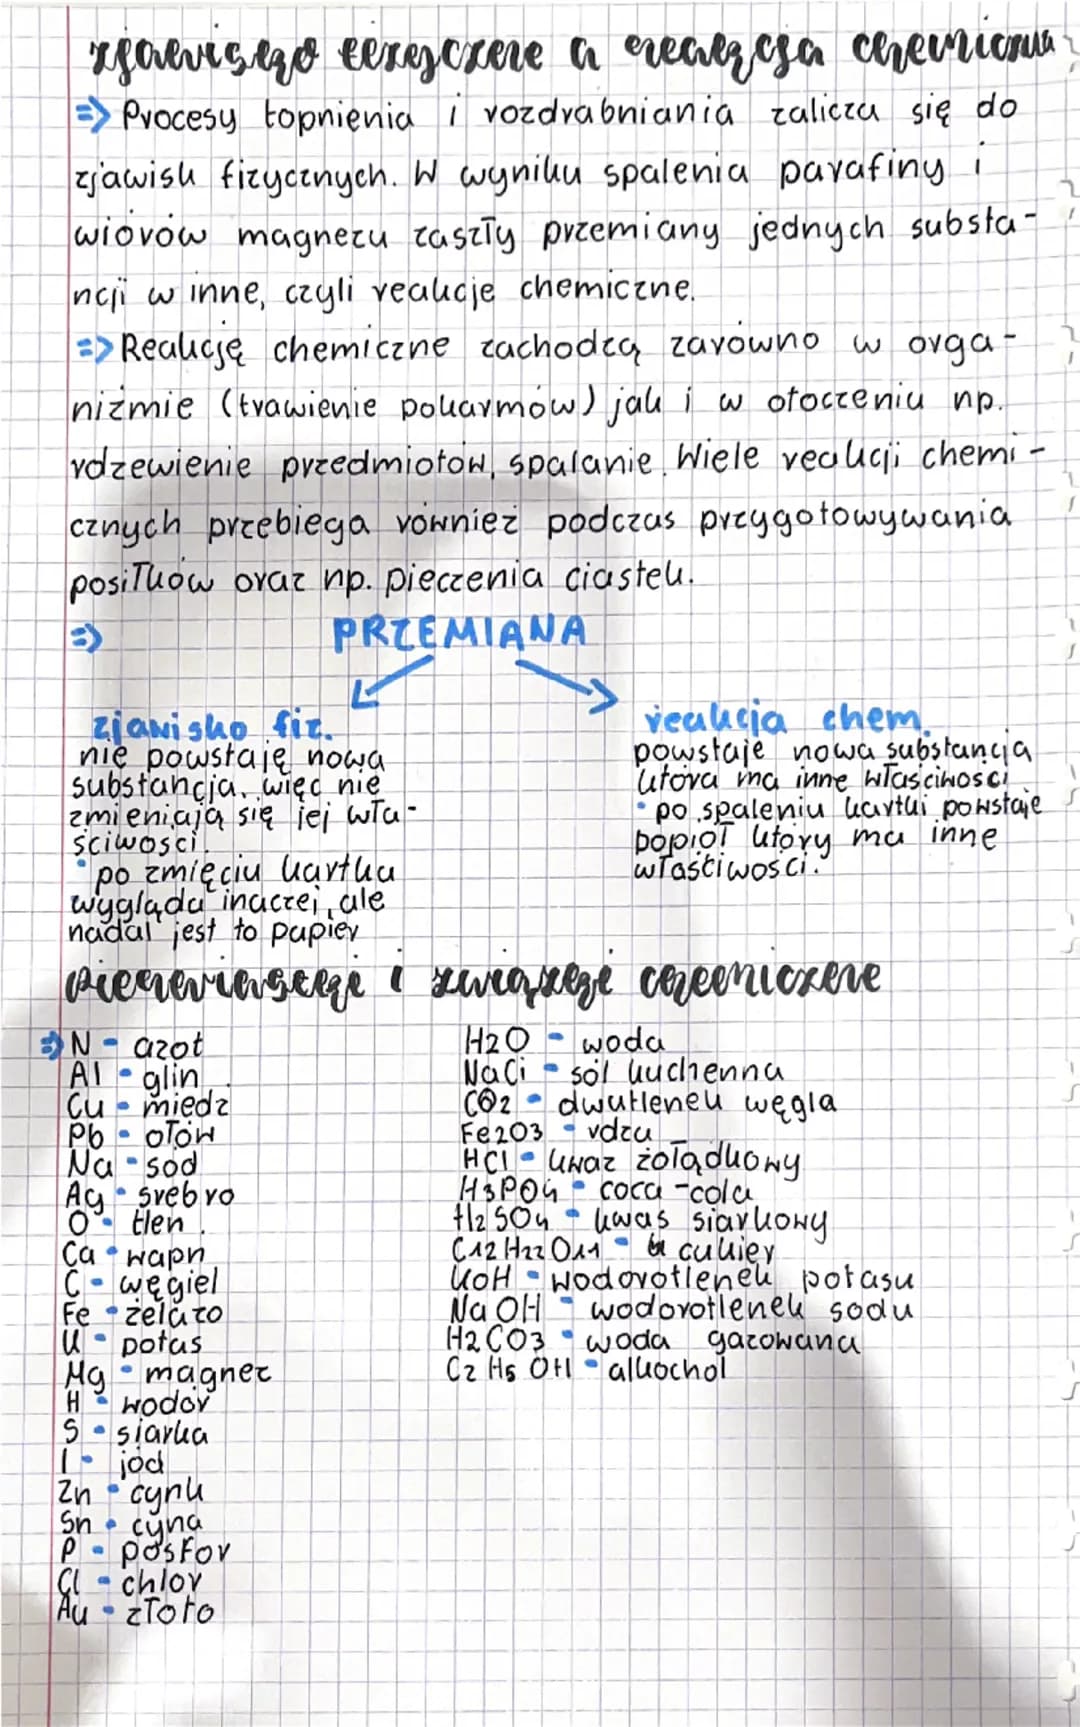 zjawisko fizyczne a reakcja chemiczna
=> Procesy topnienia i rozdrabniania zalicza się do
zjawisk fizycznych. W wyniku spalenia parafiny i
wiórów magnezu zaszły przemiany jednych substa-
ncji w inne, czyli reakcje chemiczne.
=> Reakcję chemiczne zachodzą zarówno w orga-
niźmie (trawienie pokarmów) jak i w otoczeniu np.
rdzewienie przedmiotów, spalanie. Wiele reakcji chemi-
cznych przebiega również podczas przygotowywania
posiłków oraz np. pieczenia ciastek.
=> PRZEMIANA
zjawisko fiz.
nie powstaję nowa
substancja, więc nie
zmieniają się jej wła-
ściwości.
• po zmięciu kartka
wygląda inaczej, ale
nadal jest to papier
reakcja chem.
powstaje nowa substancja
która ma inne właściwości
• po spaleniu kartki powstaje
popiół który ma inne
właściwości.
pierwiastki i związki chemiczne
=> N - azot
Al - glin
Cu - miedź
Pb - ołów
Na - sód
Ag - srebro
O - tlen
Ca - wapń
C - węgiel
Fe - żelazo
K - potas
Mg - magnez
H - wodór
S - siarka
I - jod
Zn - cynk
Sn - cyna
P - posfor
Cl - chlor
Au - złoto
H2O - woda
NaCl - sól kuchenna
CO2 - dwutlenek węgla
Fe2O3 - rdza
HCl - kwaz żołądkowy
H3PO4 - coca-cola
H2SO4 - kwas siarkowy
C12H22O11 - cukier
KOH - wodorotlenek potasu
NaOH - wodorotlenek sodu
H2CO3 - woda gazowana
C2H5OH - alkochol